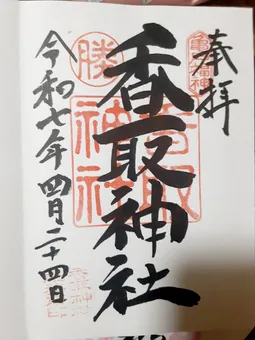 奉拝
香取神社
令和七年四月二十四日
勝
香取
神社